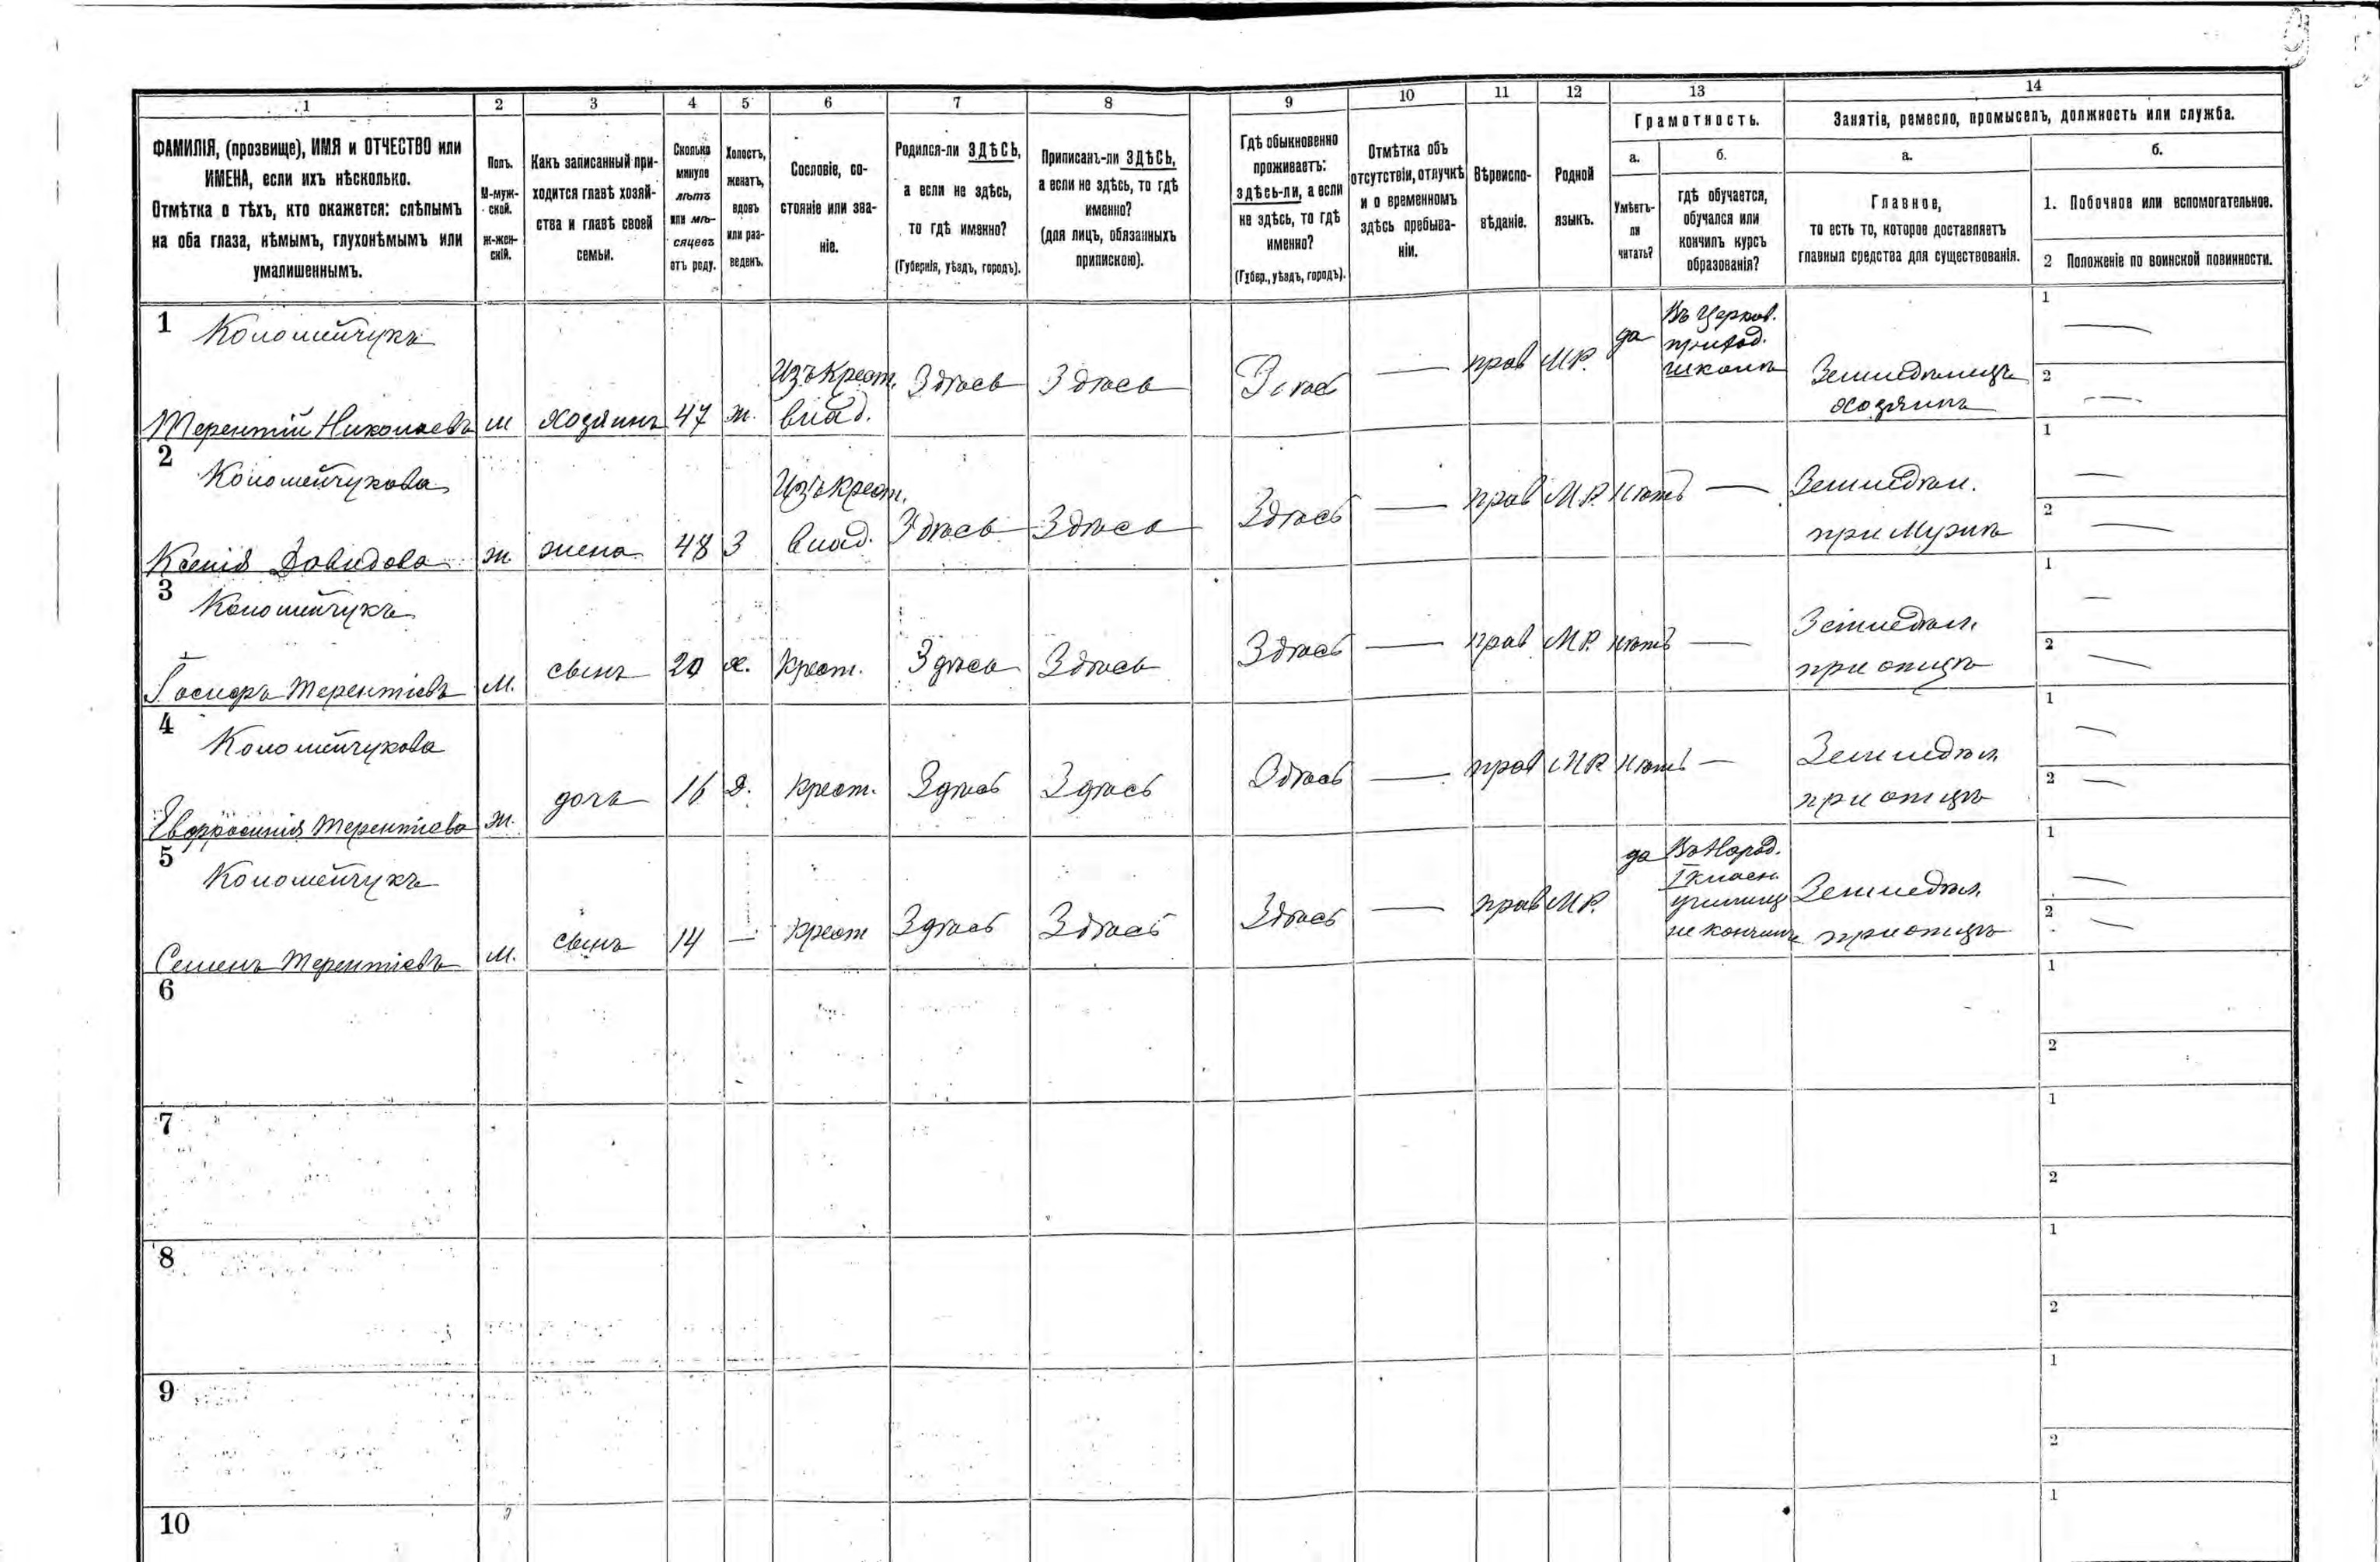 1 2 3 4 5 6 7 8 9 10 11 12 13 14
ФАМИЛІЯ, (прозвище), ИМЯ и ОТЧЕСТВО или
ИМЕНА, если ихъ нѣсколько.
Отмѣтка о тѣхъ, кто окажется: слѣпымъ
на оба глаза, нѣмымъ, глухонѣмымъ или
умалишеннымъ.
Полъ.
М-муж-
ской.
Ж-жен-
скій.
Какъ записанный при-
ходится главѣ хозяй-
ства и главѣ своей
семьи.
Сколько
минуло
лѣтъ
или мѣ-
сяцевъ
отъ роду.
Холостъ,
женатъ,
вдовъ
или раз-
веденъ.
Сословіе, со-
стояніе или зва-
ніе.
Родился-ли ЗДѢСЬ,
а если не здѣсь,
то гдѣ именно?
(Губернія, уѣздъ, городъ).
Приписанъ-ли ЗДѢСЬ,
а если не здѣсь, то гдѣ
именно?
(для лицъ, обязанныхъ
припискою).
Гдѣ обыкновенно
проживаетъ:
здѣсь-ли, а если
не здѣсь, то гдѣ
именно?
(Губер., уѣздъ, городъ).
Отмѣтка объ
отсутствіи, отлучкѣ
и о временномъ
здѣсь пребыва-
ніи.
Вѣроиспо-
вѣданіе.
Родной
языкъ.
Грамотность.
а.
Умѣетъ-
ли
читать?
б.
гдѣ обучается,
обучался или
кончилъ курсъ
образованія?
Занятіе, ремесло, промыселъ, должность или служба.
а.
Главное,
то есть то, которое доставляетъ
главныя средства для существованія.
б.
1. Побочное или вспомогательное.
2 Положеніе по воинской повинности.
1 Коломейчукъ
Терентій Николаевъ м хозяинъ 47 ж. Изъ Крест. влад. Здѣсь Здѣсь Здѣсь — прав М.Р. да Въ Церков. приход. школѣ Земледѣлецъ хозяинъ 1 — 2 —
2 Коломейчукова
Ксенія Давидова ж жена 48 З Изъ крест. влад. Здѣсь Здѣсь Здѣсь — прав М.Р. нѣтъ — Земледѣл. при Мужѣ 1 — 2 —
3 Коломейчукъ
Іосифъ Терентіевъ м. сынъ 20 х. крест. Здѣсь Здѣсь Здѣсь — прав М.Р. нѣтъ — Земледѣл. при отцѣ 1 — 2 —
4 Коломейчукова
Евфросинія Терентіева ж. дочь 16 д. крест. Здѣсь Здѣсь Здѣсь — прав М.Р. нѣтъ — Земледѣл. при отцѣ 1 — 2 —
5 Коломейчукъ
Семенъ Терентіевъ м. сынъ 14 — крест Здѣсь Здѣсь Здѣсь — прав М.Р. да Въ Народ. 1 класн. училищ не кончилъ Земледѣл. при отцѣ 1 — 2 —
6 1 2
7 1 2
8 1 2
9 1 2
10 1